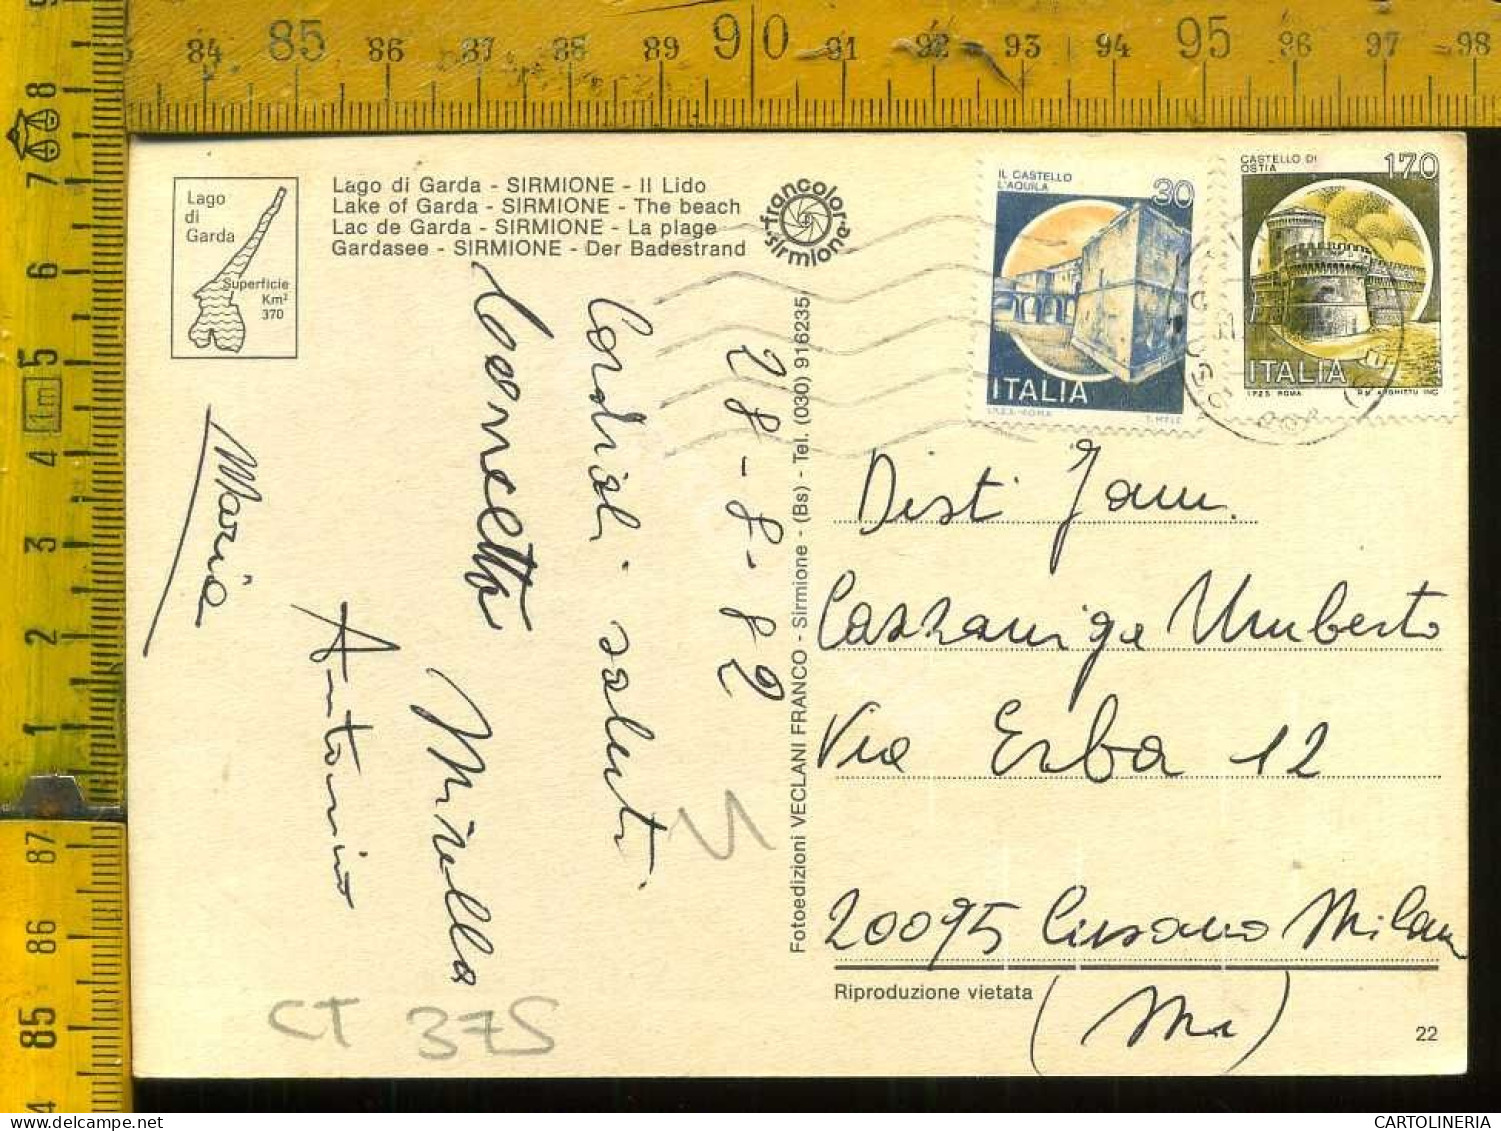 84 85 86 87 88 89 90 91 92 93 94 95 96 97 98
8
7
6
5
1m
4
3
2
1
87
86
85
Lago
di
Garda
Superficie
Km²
370
Lago di Garda - SIRMIONE - Il Lido
Lake of Garda - SIRMIONE - The beach
Lac de Garda - SIRMIONE - La plage
Gardasee - SIRMIONE - Der Badestrand
francolor
sirmione
IL CASTELLO
L'AQUILA
30
ITALIA
I.P.Z.S. - ROMA
CASTELLO DI
OSTIA
170
ITALIA
I.P.Z.S. ROMA
28-8-82
Cordiali saluti
Mirella
Antonino
Maria
Fotoedizioni VECLANI FRANCO - Sirmione - (Bs) - Tel. (030) 916235
Dist. Fam.
Cazzaniga Umberto
Via Erba 12
20095 Cusano Milan
(Mi)
Riproduzione vietata
22
CT 375
CARTOLINERIA